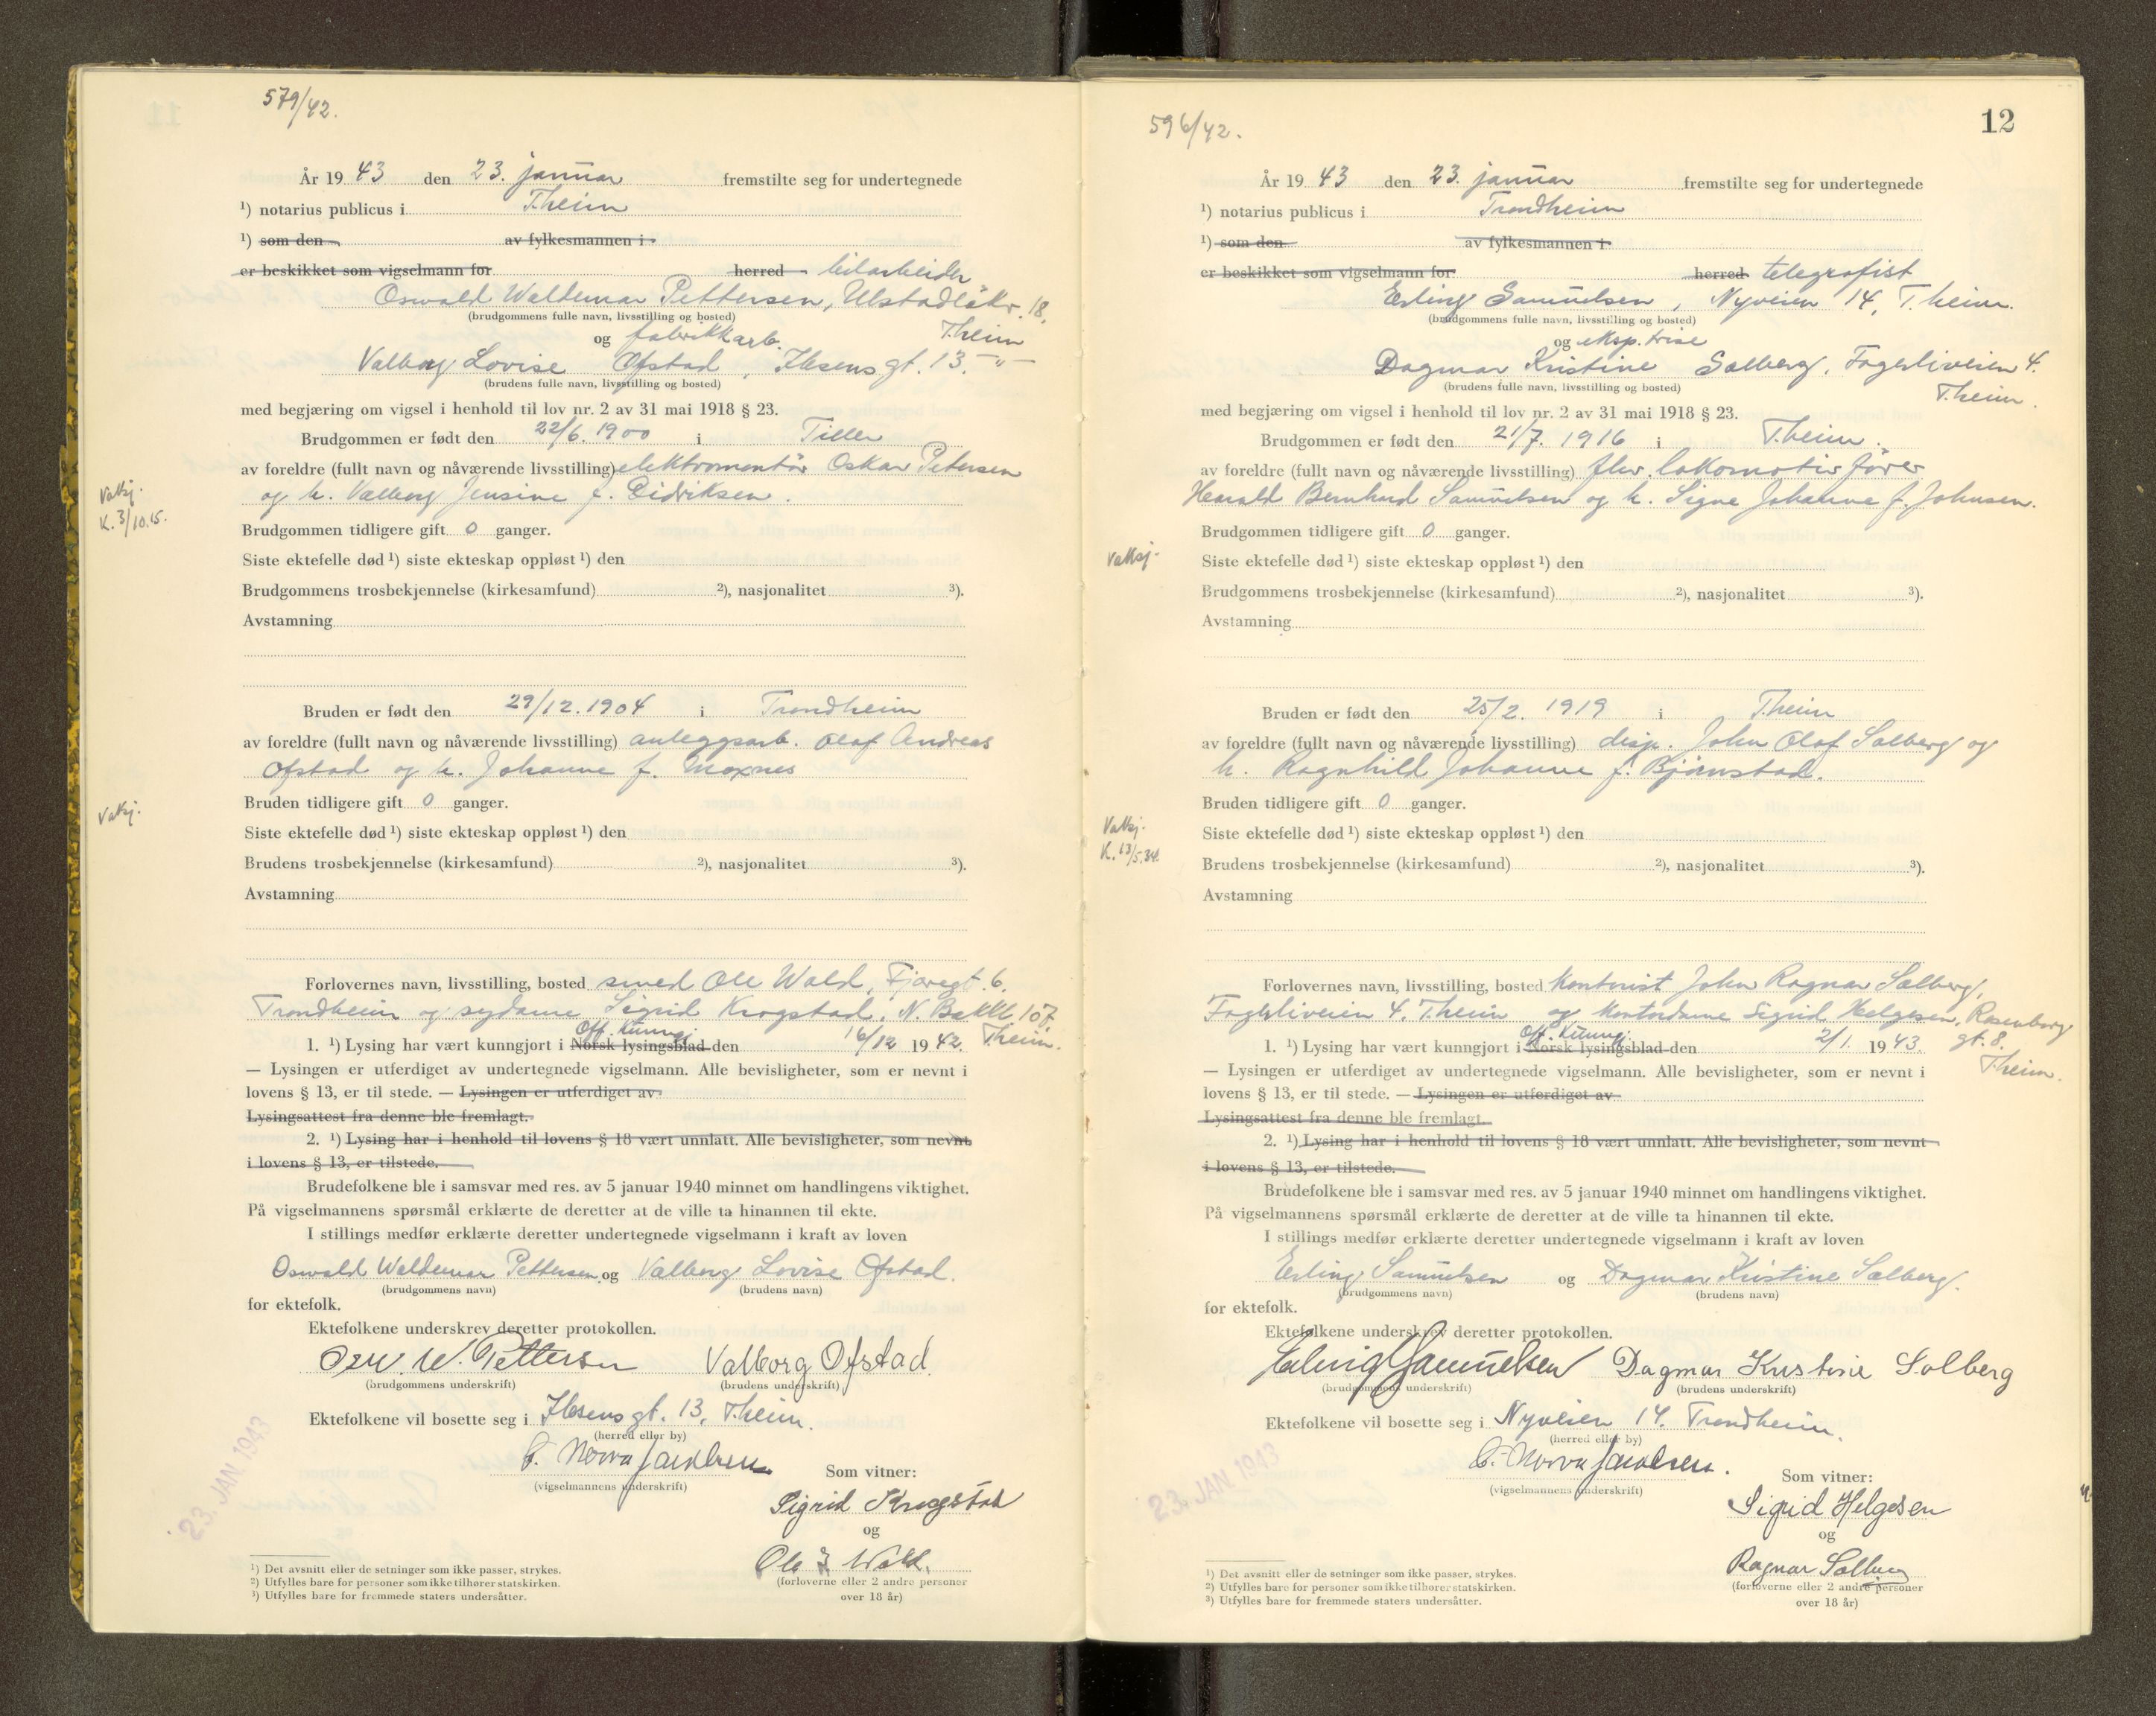 579/42.
År 19 43 den 23. januar fremstilte seg for undertegnede
¹) notarius publicus i T.heim
¹) som den av fylkesmannen i
er beskikket som vigselmann for herred bilarbeider
Oswald Waldemar Pettersen, Ulstadløkv. 18,
(brudgommens fulle navn, livsstilling og bosted) T.heim
og fabrikkarb.
Valborg Lovise Ofstad, Ilsensgt. 13. –"–
(brudens fulle navn, livsstilling og bosted)
med begjæring om vigsel i henhold til lov nr. 2 av 31 mai 1918 § 23.
Brudgommen er født den 22/6. 1900 i Tiller
av foreldre (fullt navn og nåværende livsstilling) elektromontør Oskar Petersen
og h. Valborg Jensine f. Eidriksen.
Vatksj.
K. 3/10.15.
Brudgommen tidligere gift 0 ganger.
Siste ektefelle død ¹) siste ekteskap oppløst ¹) den
Brudgommens trosbekjennelse (kirkesamfund) ²), nasjonalitet ³).
Avstamning
Bruden er født den 29/12. 1904 i Trondheim
av foreldre (fullt navn og nåværende livsstilling) anleggsarb. Olaf Andreas
Ofstad og h. Johanne f. Moxnes
Bruden tidligere gift 0 ganger.
Vaksj.
Siste ektefelle død ¹) siste ekteskap oppløst ¹) den
Brudens trosbekjennelse (kirkesamfund) ²), nasjonalitet ³).
Avstamning
Forlovernes navn, livsstilling, bosted smed Ole Wold, Fjæregt. 6.
Trondheim og sydame Sigrid Krogstad, N. Bakkl. 107,
Off. Kunngj.
1. ¹) Lysing har vært kunngjort i Norsk lysingsblad den 16/12 19 42. T.heim.
— Lysingen er utferdiget av undertegnede vigselmann. Alle bevisligheter, som er nevnt i
lovens § 13, er til stede. — Lysingen er utferdiget av
Lysingsattest fra denne ble fremlagt.
2. ¹) Lysing har i henhold til lovens § 18 vært unnlatt. Alle bevisligheter, som nevnt
i lovens § 13, er tilstede.
Brudefolkene ble i samsvar med res. av 5 januar 1940 minnet om handlingens viktighet.
På vigselmannens spørsmål erklærte de deretter at de ville ta hinannen til ekte.
I stillings medfør erklærte deretter undertegnede vigselmann i kraft av loven
Oswald Waldemar Pettersen og Valborg Lovise Ofstad.
(brudgommens navn) (brudens navn)
for ektefolk.
Ektefolkene underskrev deretter protokollen.
Osw. W. Pettersen Valborg Ofstad
(brudgommens underskrift) (brudens underskrift)
Ektefolkene vil bosette seg i Ilsensgt. 13, T.heim.
(herred eller by)
(vigselmannens underskrift)
Som vitner:
Sigrid Krogstad
og
Ole J. Wold.
(forloverne eller 2 andre personer
over 18 år)
23. JAN. 1943
¹) Det avsnitt eller de setninger som ikke passer, strykes.
²) Utfylles bare for personer som ikke tilhører statskirken.
³) Utfylles bare for fremmede staters undersåtter.
596/42.
12
År 19 43 den 23. januar fremstilte seg for undertegnede
¹) notarius publicus i Trondheim
¹) som den av fylkesmannen i
er beskikket som vigselmann for herred telegrafist
Erling Samuelsen, Nyveien 14, T.heim.
(brudgommens fulle navn, livsstilling og bosted)
og eksp.trise
Dagmar Kristine Solberg, Fagerliveien 4.
(brudens fulle navn, livsstilling og bosted) T.heim.
med begjæring om vigsel i henhold til lov nr. 2 av 31 mai 1918 § 23.
Brudgommen er født den 21/7. 1916 i T.heim.
av foreldre (fullt navn og nåværende livsstilling) fhv. lokomotivfører
Harald Bernhard Samuelsen og h. Signe Johanne f. Johnsen.
Brudgommen tidligere gift 0 ganger.
Vatksj.
Siste ektefelle død ¹) siste ekteskap oppløst ¹) den
Brudgommens trosbekjennelse (kirkesamfund) ²), nasjonalitet ³).
Avstamning
Bruden er født den 25/2. 1919 i T.heim
av foreldre (fullt navn og nåværende livsstilling) disp. John Olaf Solberg og
h. Ragnhild Johanne f. Bjørnstad.
Bruden tidligere gift 0 ganger.
Vatksj.
K. 13/5.34.
Siste ektefelle død ¹) siste ekteskap oppløst ¹) den
Brudens trosbekjennelse (kirkesamfund) ²), nasjonalitet ³).
Avstamning
Forlovernes navn, livsstilling, bosted kontorist John Ragnar Solberg,
Fagerliveien 4. T.heim og kontordame Sigrid Helgesen, Rosenborg
gt. 8. T.heim.
Off. Kunngj.
1. ¹) Lysing har vært kunngjort i Norsk lysingsblad den 2/1. 19 43.
— Lysingen er utferdiget av undertegnede vigselmann. Alle bevisligheter, som er nevnt i
lovens § 13, er til stede. — Lysingen er utferdiget av
Lysingsattest fra denne ble fremlagt.
2. ¹) Lysing har i henhold til lovens § 18 vært unnlatt. Alle bevisligheter, som nevnt
i lovens § 13, er tilstede.
Brudefolkene ble i samsvar med res. av 5 januar 1940 minnet om handlingens viktighet.
På vigselmannens spørsmål erklærte de deretter at de ville ta hinannen til ekte.
I stillings medfør erklærte deretter undertegnede vigselmann i kraft av loven
Erling Samuelsen og Dagmar Kristine Solberg.
(brudgommens navn) (brudens navn)
for ektefolk.
Ektefolkene underskrev deretter protokollen.
Erling Samuelsen Dagmar Kristine Solberg
(brudgommens underskrift) (brudens underskrift)
Ektefolkene vil bosette seg i Nyveien 14. Trondheim.
(herred eller by)
(vigselmannens underskrift)
Som vitner:
Sigrid Helgesen
og
Ragnar Solberg
(forloverne eller 2 andre personer
over 18 år)
23. JAN. 1943
¹) Det avsnitt eller de setninger som ikke passer, strykes.
²) Utfylles bare for personer som ikke tilhører statskirken.
³) Utfylles bare for fremmede staters undersåtter.